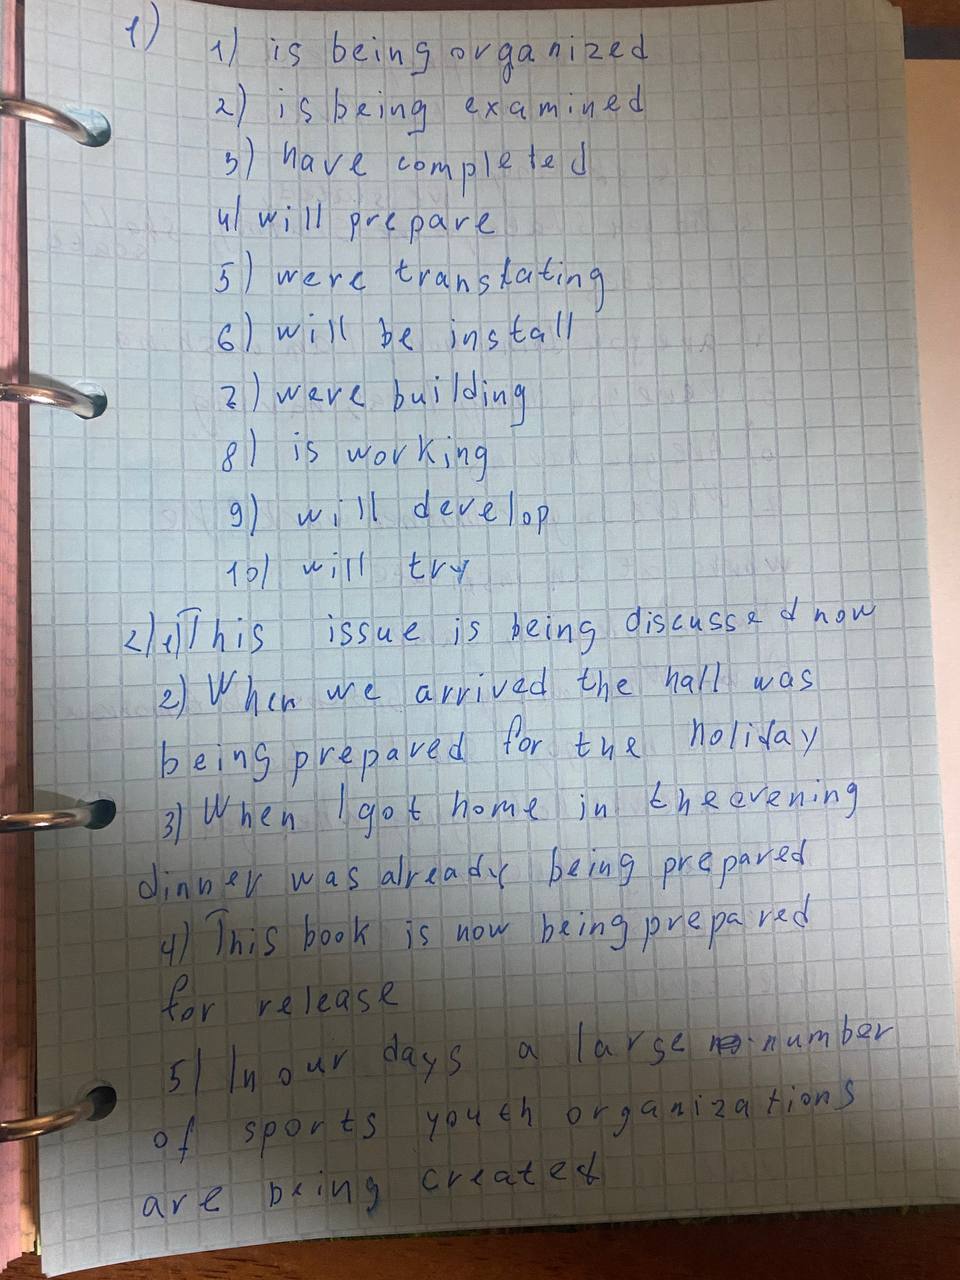 1)
1) is being organized
2) is being examined
3) have completed
4) will prepare
5) were translating
6) will be install
7) were building
8) is working
9) will develop
10) will try
2) 1) This issue is being discussed now
2) When we arrived the hall was
being prepared for the holiday
3) When I got home in the evening
dinner was already being prepared
4) This book is now being prepared
for release
5) In our days a large number
of sports youth organizations
are being created